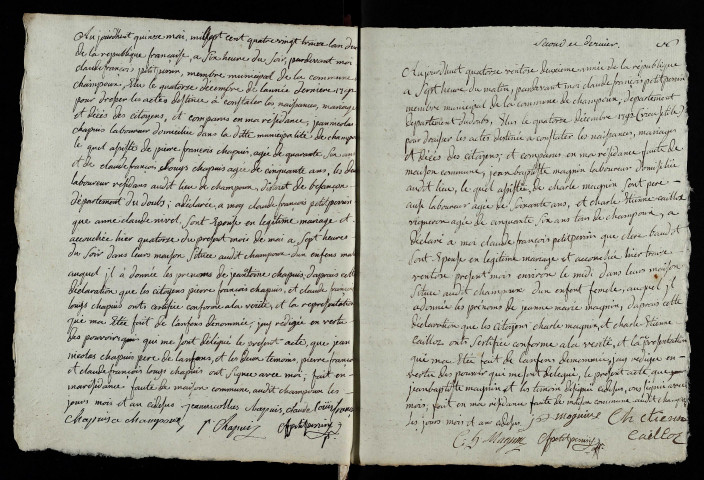 Aujourdhuit quinze mai, mil sept cent quatre vingt treize lan deux
de la republique francaise, a six heure du Soir, pardevant moi
claude françois petitperrin, membre municipal de la commune de
champoux, Elus le quatorze decembre de lannée derniere 1792
pour dresser les actes destiné a constater les naissances, mariages
et décés des citoyens, et comparus en ma résidance, jean nicolas
chapuis laboureur domicilié dans la ditte municipalité de champoux
le quel assisté de pierre françois chapuis, agée de quarante six ans
et de claude françois lougs chapuis agée de cinquante ans, les deux
laboureur résidans audit lieu de champoux, district de besançon
département du doubs; a déclarée, a moy claude françois petit perrin
que anne claude nivol, Sont Epouse en legitime mariage et
accouchée hier quatorze du present mois de mai a Sept heures
du Soir dans leurs maison Scituée audit champoux dun enfans male
auquel il a donnée les prenoms de jean chapuis, daprais cette
déclaration que les citoyens pierre françois chapuis, et claude francois
lougs chapuis ont certifiée conforme ala verité, et la représentation
qui ma Etée fait de lanfans dénommée, jay redigée en vertu
des pouvoir que me sont délégué le présent acte, que jean
nicolas chapuis pere de lanfans, et les deux temoins, pierre francois
et claude françois lougs chapuis ont Signée avec moi; fait en
ma residance faute de maison commune, audit champoux les
jours mois et an cidessus
Chapuis Petitperrin
Second et dernier
Aujourdhuit quatorze ventose deuxieme année de la république
a Sept heure du matin, pardevant moi claude françois petitperrin
membre municipal de la commune de champoux, département
département du doubs, Elus le quatorze decembre 1792
pour dresser les actes destinée a constater les naissances, mariages
et décés des citoyens; et comparus en ma résidance faute de
maison commune, jean baptiste magnin laboureur domicilié
audit lieu, le quel assistée, de charle magnin Sont pere
aussi laboureur agée de Soixante ans, et charle Etienne cailloz
vigneron agée de cinquante Six ans tan de champoux, a
déclaré a moi claude françois petitperrin que
Sont Epouse en legitime mariage et accouchée hier treize
ventose present mois environ le midi dans leurs maison
Scituée audit champoux dun enfant femele, auquel il
a donnée les prénoms de jeanne marie magnin, daprais cette
déclaration que les citoyens charle magnin, et charle Etienne
Cailloz ont certifiée conforme ala verité, et la présentation
qui ma Etée fait de lanfans dénommée, jay redigée en
vertu des pouvoir que me sont délégué, le présent acte que
jean baptiste magnin et les temoins cidessus, ont signée avec
moi; fait en ma résidance faute de maison commune audit champoux
les jours mois et an cidessus Magnin Ch etienne
Magnin Petitperrin cailloz